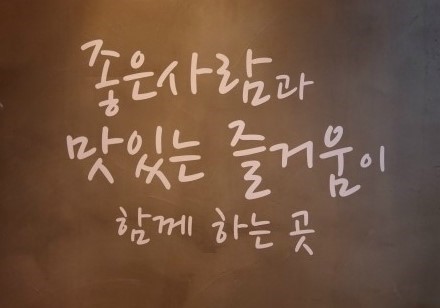 좋은사람과
맛있는 즐거움이
함께 하는 곳